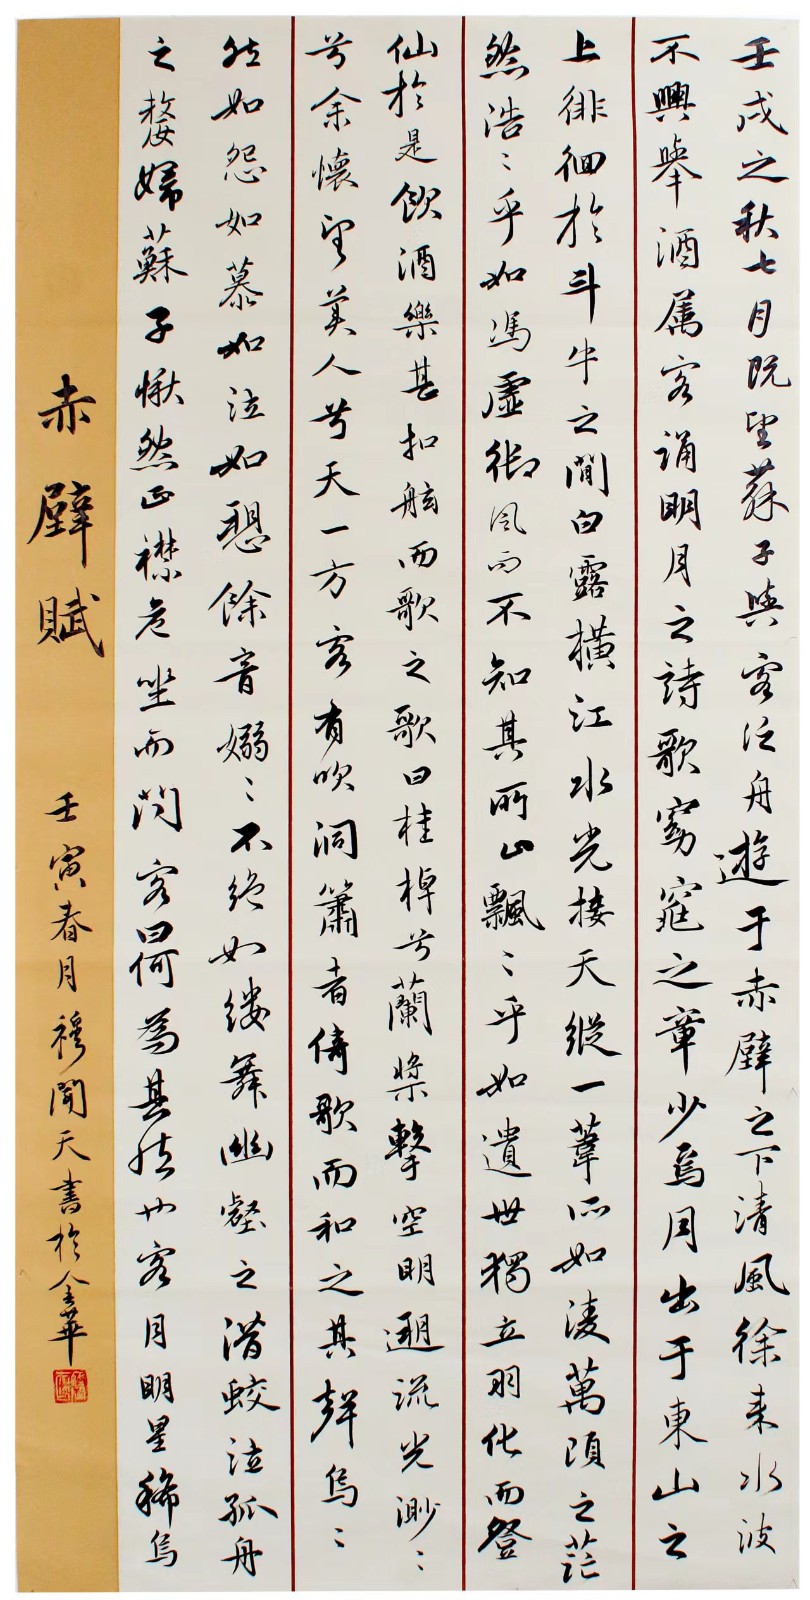 壬戌之秋七月既望蘇子與客泛舟遊于赤壁之下清風徐來水波
不興舉酒属客誦明月之詩歌窈窕之章少焉月出于東山之
上徘徊於斗牛之間白露橫江水光接天縱一葦所如淩萬頃之茫
然浩〻乎如馮虛御風而不知其所止飄〻乎如遺世獨立羽化而登
仙於是飲酒樂甚扣舷而歌之歌曰桂棹兮蘭槳擊空明遡流光渺〻
兮余懷望美人兮天一方客有吹洞簫者倚歌而和之其聲烏〻
然如怨如慕如泣如愬餘音嫋〻不絕如縷舞幽壑之潛蛟泣孤舟
之嫠婦蘇子愀然正襟危坐而問客曰何為其然也客月明星稀烏
赤壁賦
壬寅春月穆聞天書於金華